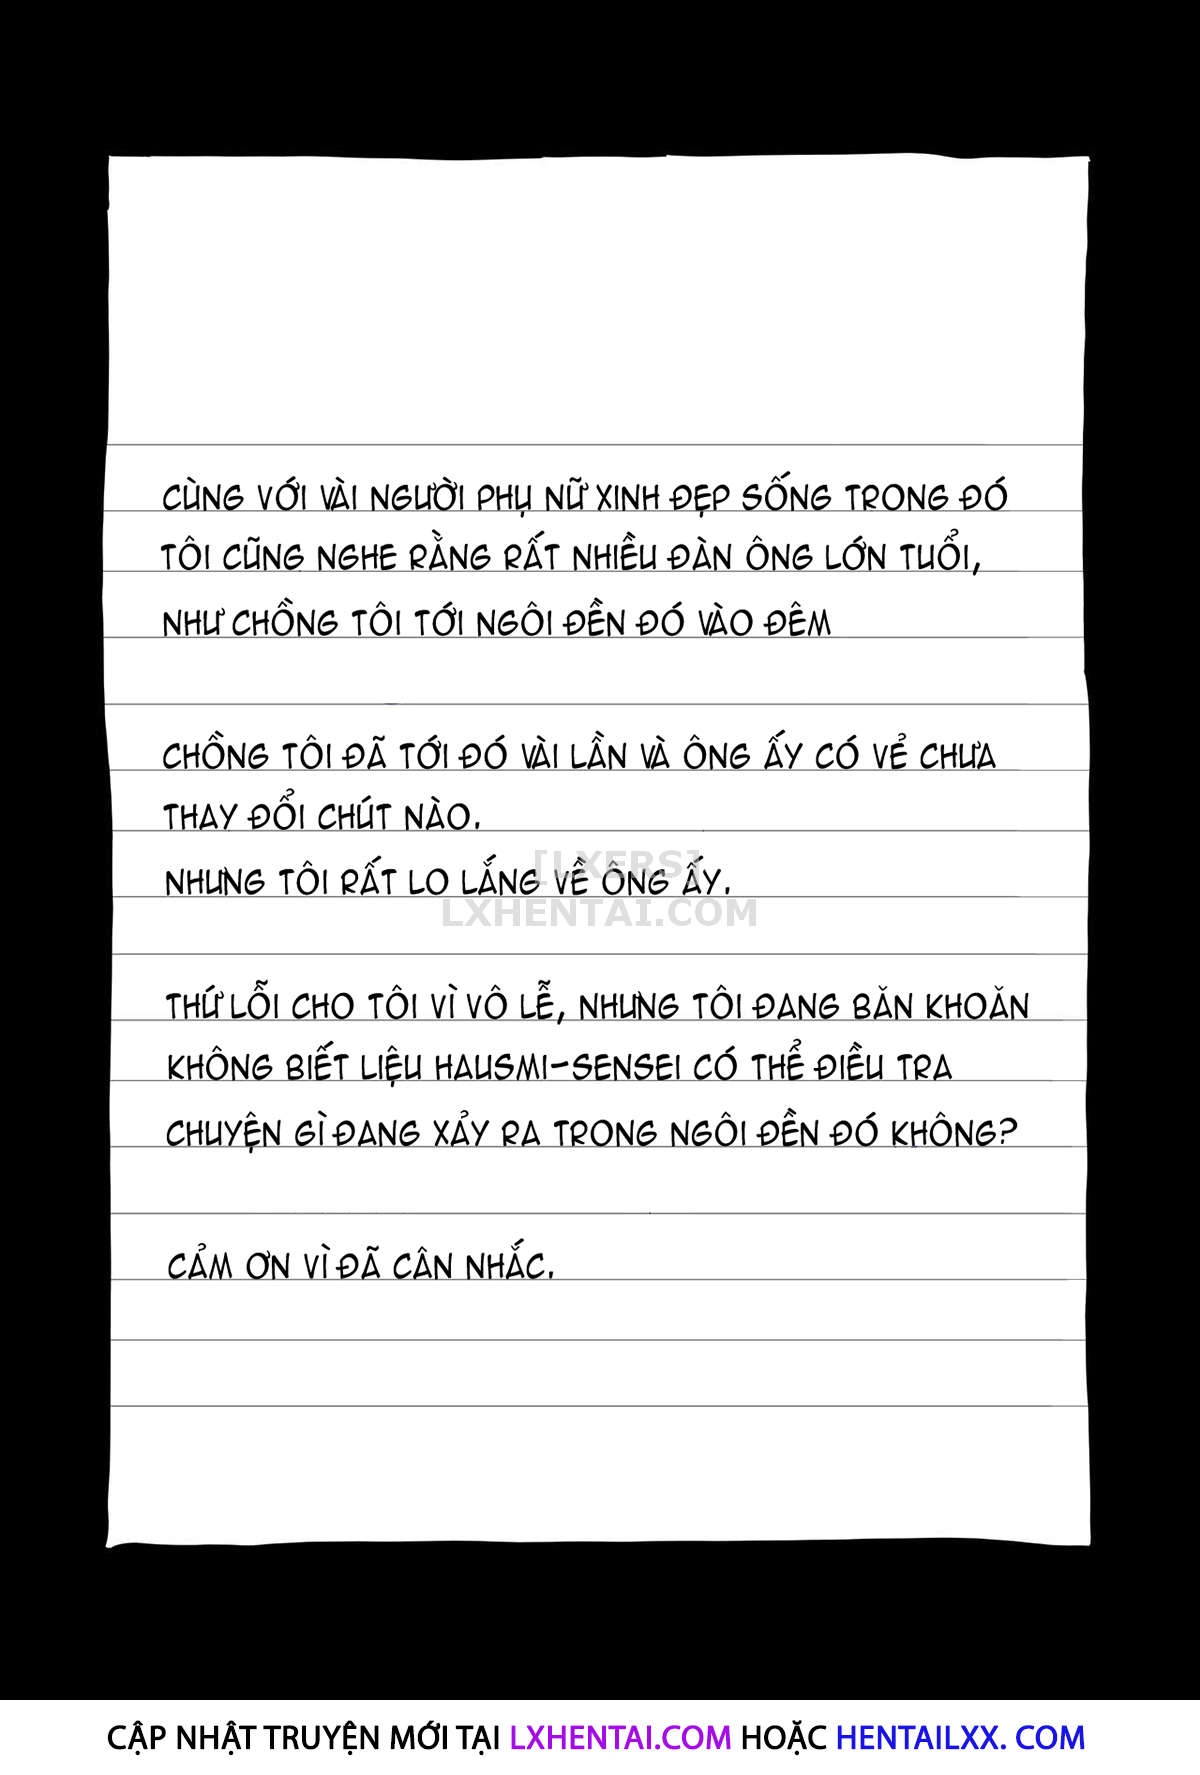 CÙNG VỚI VÀI NGƯỜI PHỤ NỮ XINH ĐẸP SỐNG TRONG ĐÓ
TÔI CŨNG NGHE RẰNG RẤT NHIỀU ĐÀN ÔNG LỚN TUỔI,
NHƯ CHỒNG TÔI TỚI NGÔI ĐỀN ĐÓ VÀO ĐÊM
CHỒNG TÔI ĐÃ TỚI ĐÓ VÀI LẦN VÀ ÔNG ẤY CÓ VẺ CHƯA
THAY ĐỔI CHÚT NÀO.
[LXERS]
NHƯNG TÔI RẤT LO LẮNG VỀ ÔNG ẤY.
LXHENTAI.COM
THỨ LỖI CHO TÔI VÌ VÔ LỄ, NHƯNG TÔI ĐANG BĂN KHOĂN
KHÔNG BIẾT LIỆU HAUSMI-SENSEI CÓ THỂ ĐIỀU TRA
CHUYỆN GÌ ĐANG XẢY RA TRONG NGÔI ĐỀN ĐÓ KHÔNG?
CẢM ƠN VÌ ĐÃ CÂN NHẮC.
CẬP NHẬT TRUYỆN MỚI TẠI LXHENTAI.COM HOẶC HENTAILXX. COM